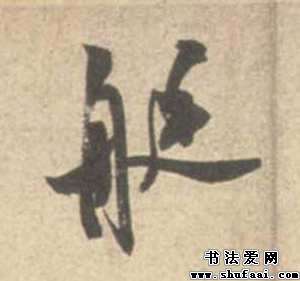 艇
书法爱网
www.shufaai.com